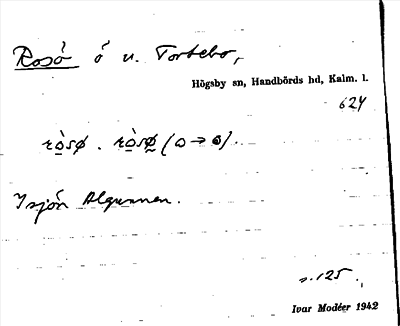 Rosö ö u. Tortebo,
Högsby sn, Handbörds hd, Kalm. l.
624
ròsø . ròsø (o → o).
I sjön Algunnen.
s. 125.
Ivar Modéer 1942